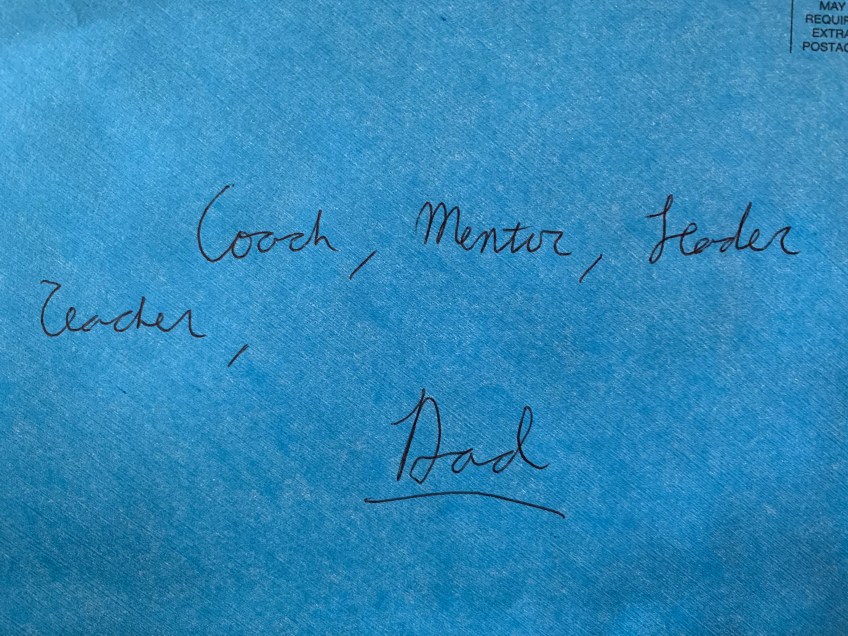 MAY
REQUIR
EXTRA
POSTAG
Coach, Mentor, Leader
Teacher,
Dad